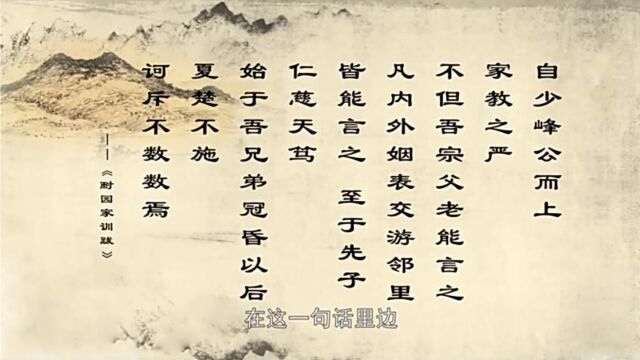 自少峰公而上
家教之严
不但吾宗父老能言之
凡内外姻表交游邻里
皆能言之 至于先子
仁慈天笃
始于吾兄弟冠昏以后
夏楚不施
诃斥不数数焉
——《耐园家训跋》
在这一句话里边